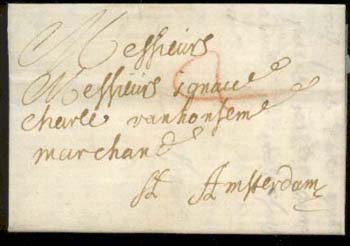 Messieurs
Messieurs ignace
charle vanhonsem
marchand
Amsterdam